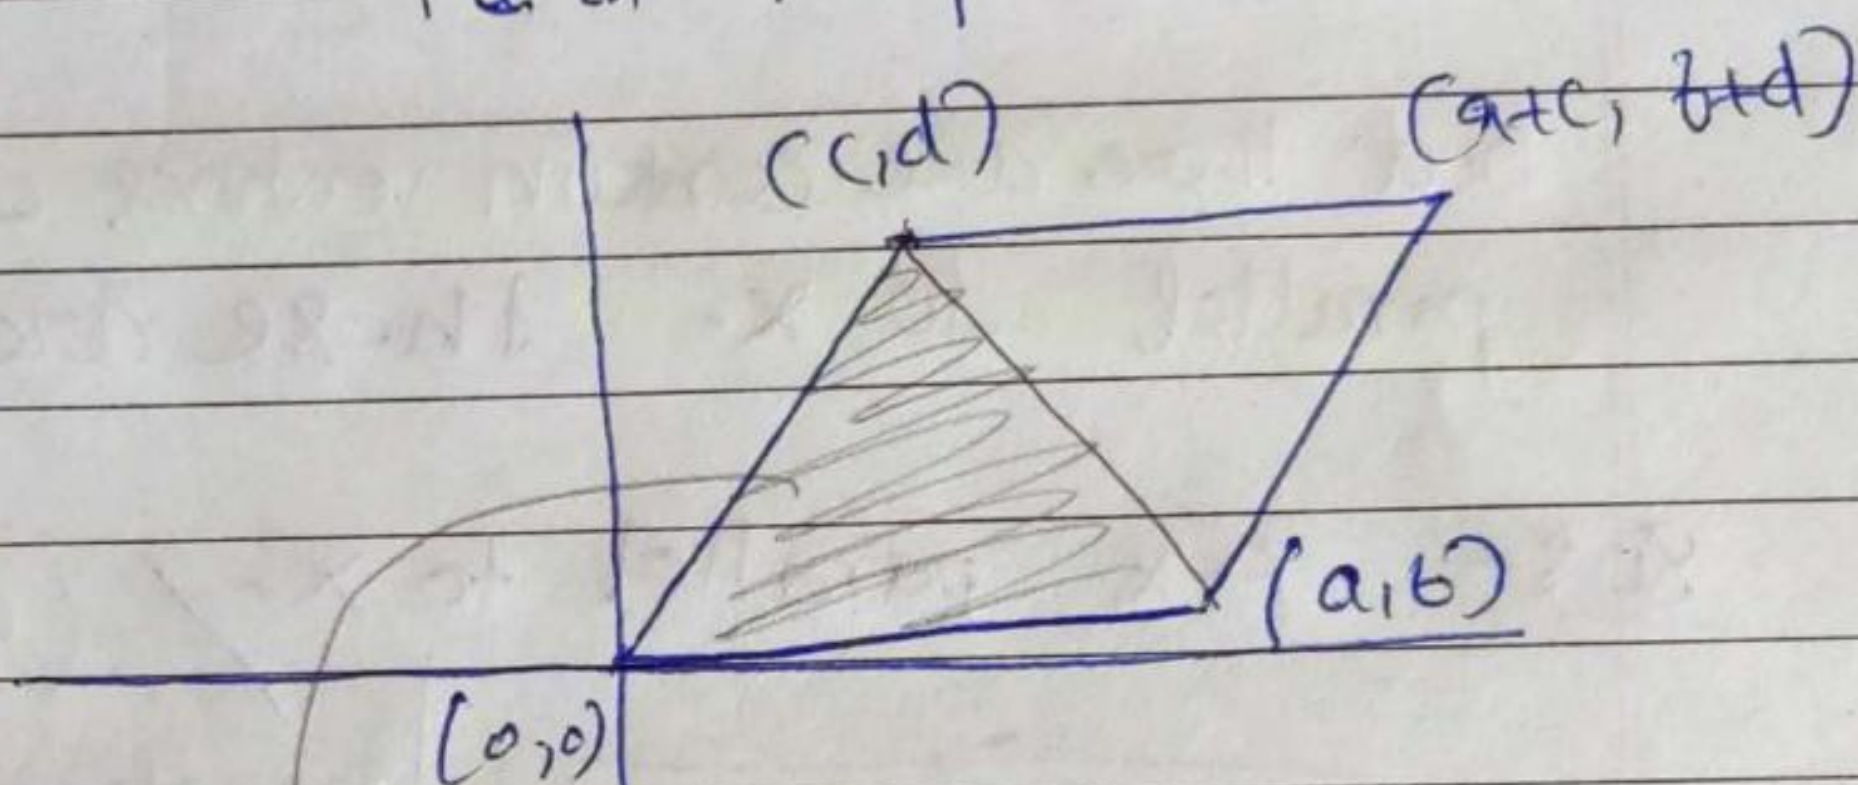 (c,d)
(a+c, b+d)
(a,b)
(0,0)